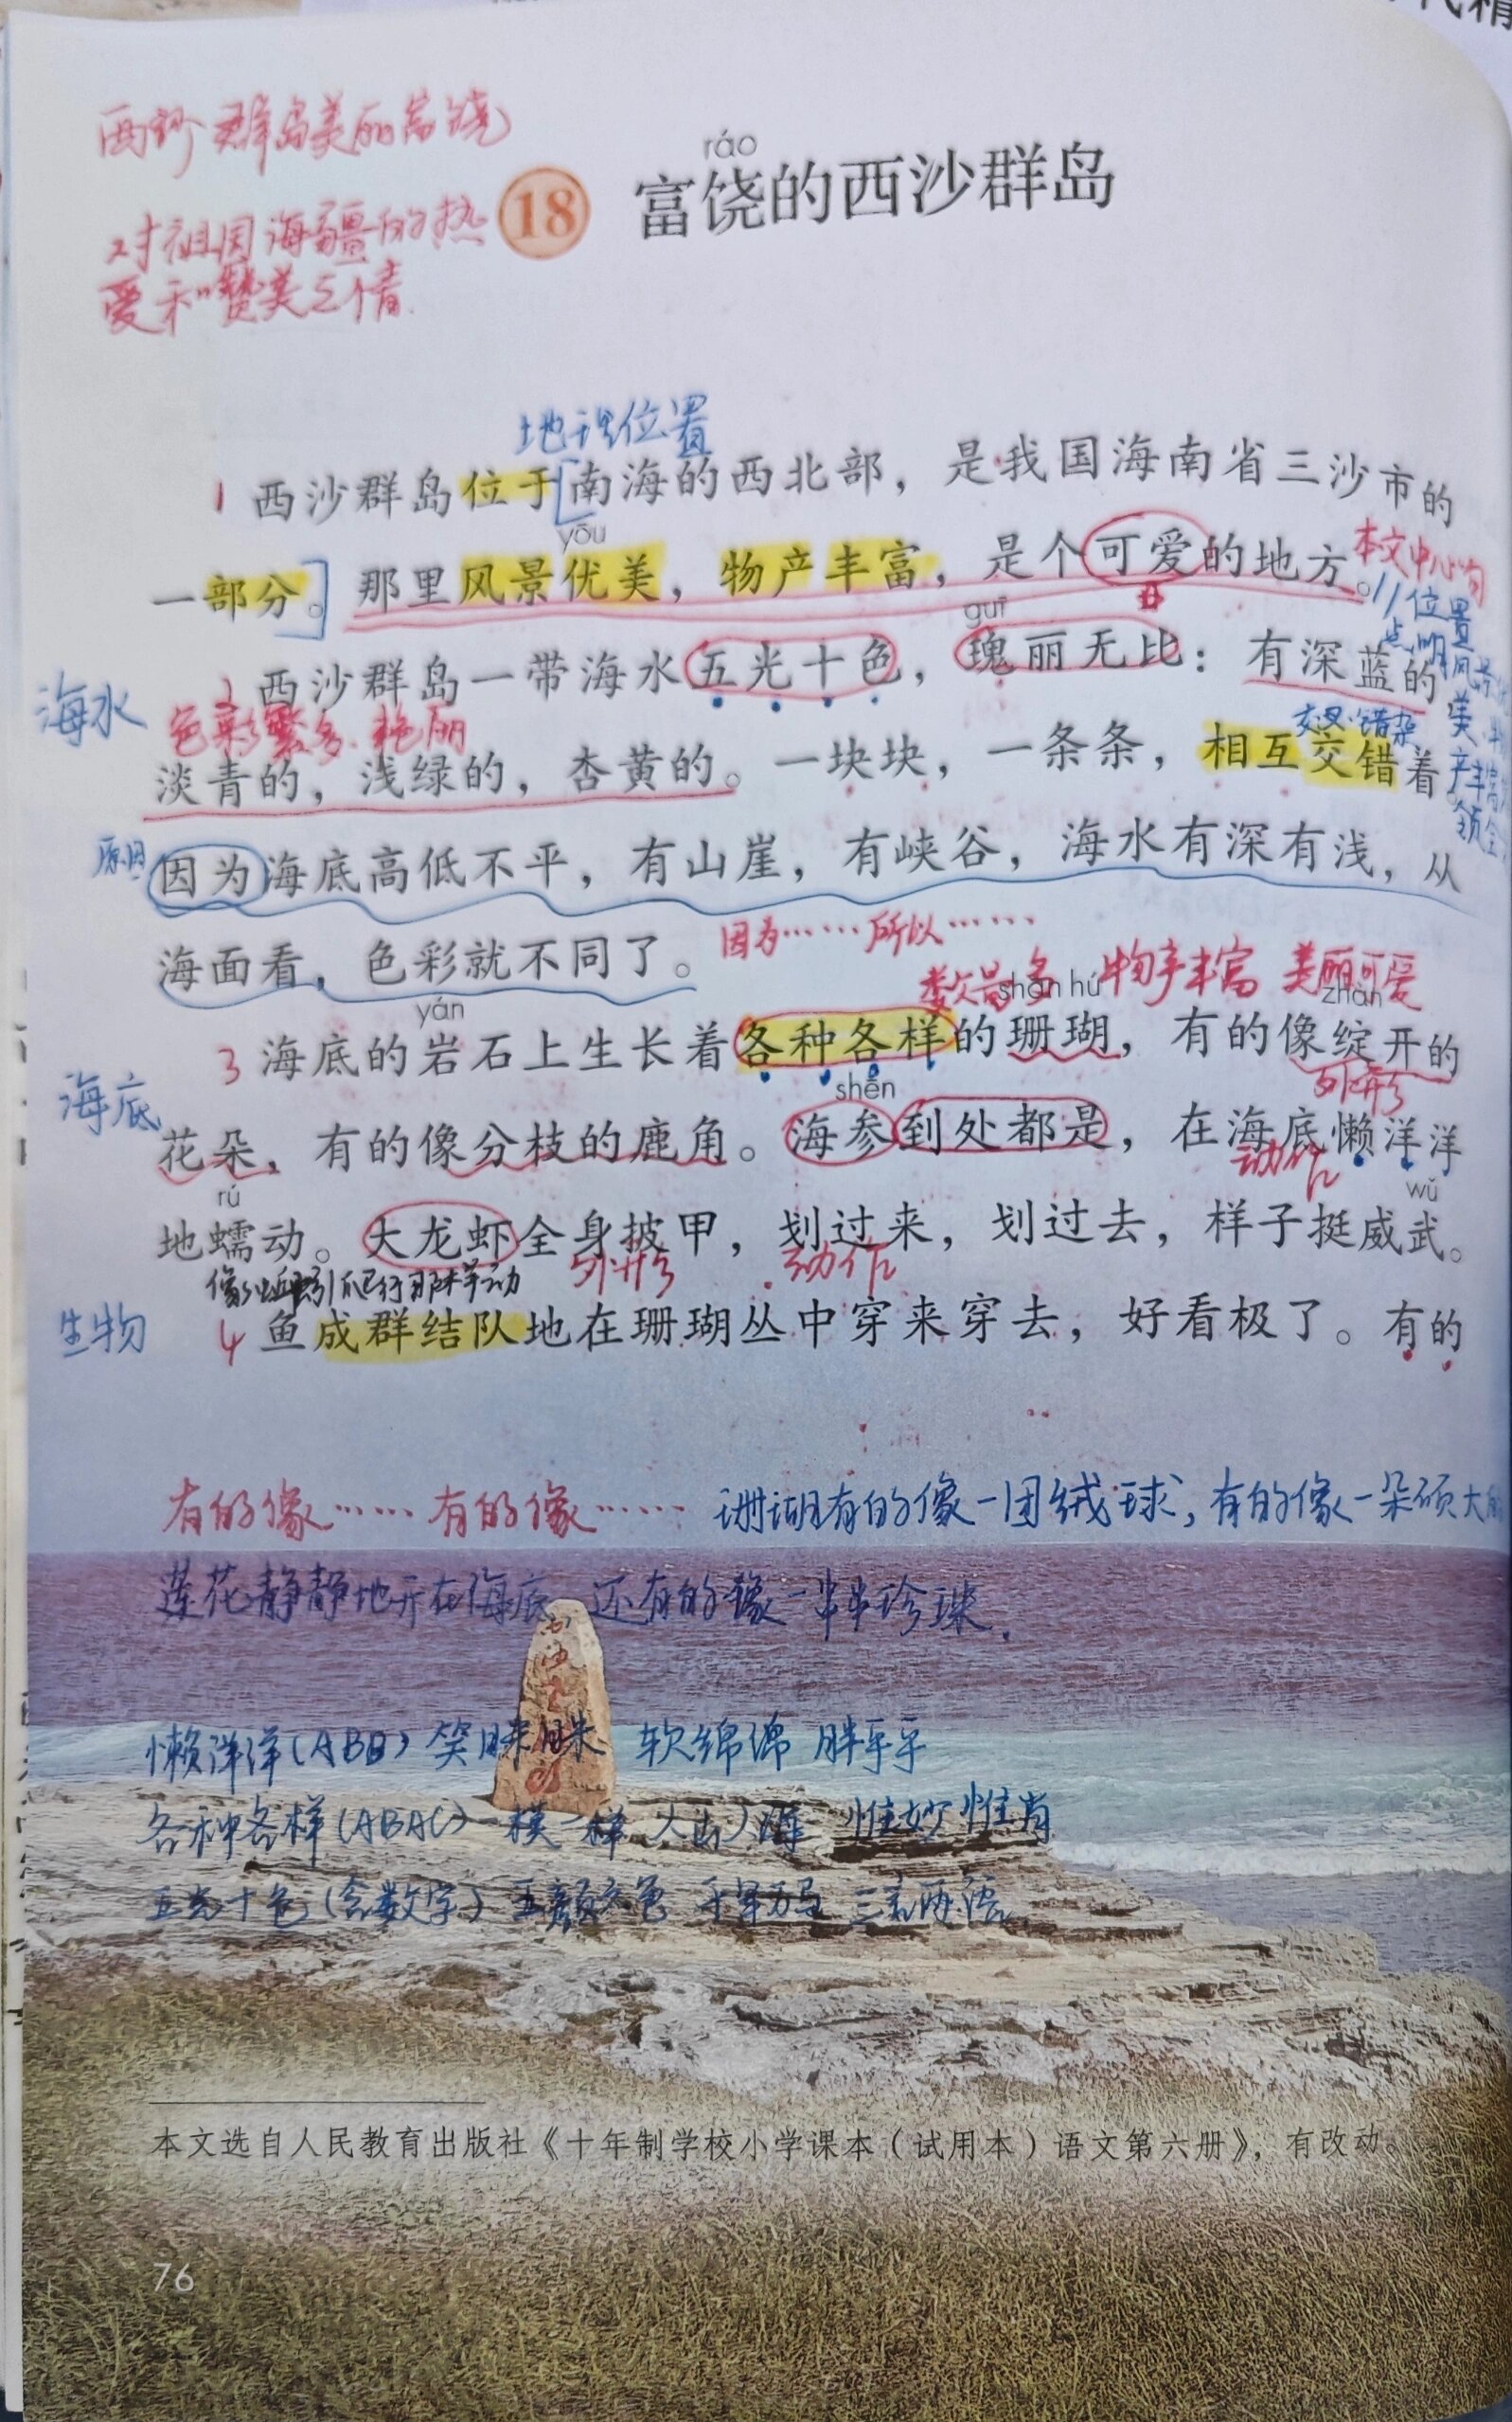 代精
西沙群岛美丽富饶
对祖国海疆的热
爱和赞美之情.
ráo
18 富饶的西沙群岛
地理位置
1 西沙群岛位于南海的西北部，是我国海南省三沙市的
yōu
一部分。那里风景优美，物产丰富，是个可爱的地方。
本文中心句
guī
海水
2 西沙群岛一带海水五光十色，瑰丽无比：有深蓝的，
色彩繁多、艳丽
交叉、错杂
淡青的，浅绿的，杏黄的。一块块，一条条，相互交错着。
原因
因为海底高低不平，有山崖，有峡谷，海水有深有浅，从
海面看，色彩就不同了。
因为……所以……
数量多 物产丰富 美丽可爱
yán shān hú zhàn
海底
3 海底的岩石上生长着各种各样的珊瑚，有的像绽开的
外形
shēn
花朵，有的像分枝的鹿角。海参到处都是，在海底懒洋洋
动作
rú wǔ
地蠕动。大龙虾全身披甲，划过来，划过去，样子挺威武。
像蚯蚓爬行那样动 外形 动作
生物
4 鱼成群结队地在珊瑚丛中穿来穿去，好看极了。有的
有的像…… 有的像…… 珊瑚有的像一团绒球，有的像一朵硕大的
莲花静静地开在海底，还有的像一串串珍珠.
懒洋洋(ABB) 笑眯眯 软绵绵 胖乎乎
各种各样(ABAC) 一模一样 人山人海 惟妙惟肖
五光十色(含数字) 五颜六色 千军万马 三言两语
本文选自人民教育出版社《十年制学校小学课本（试用本）语文第六册》，有改动。
76